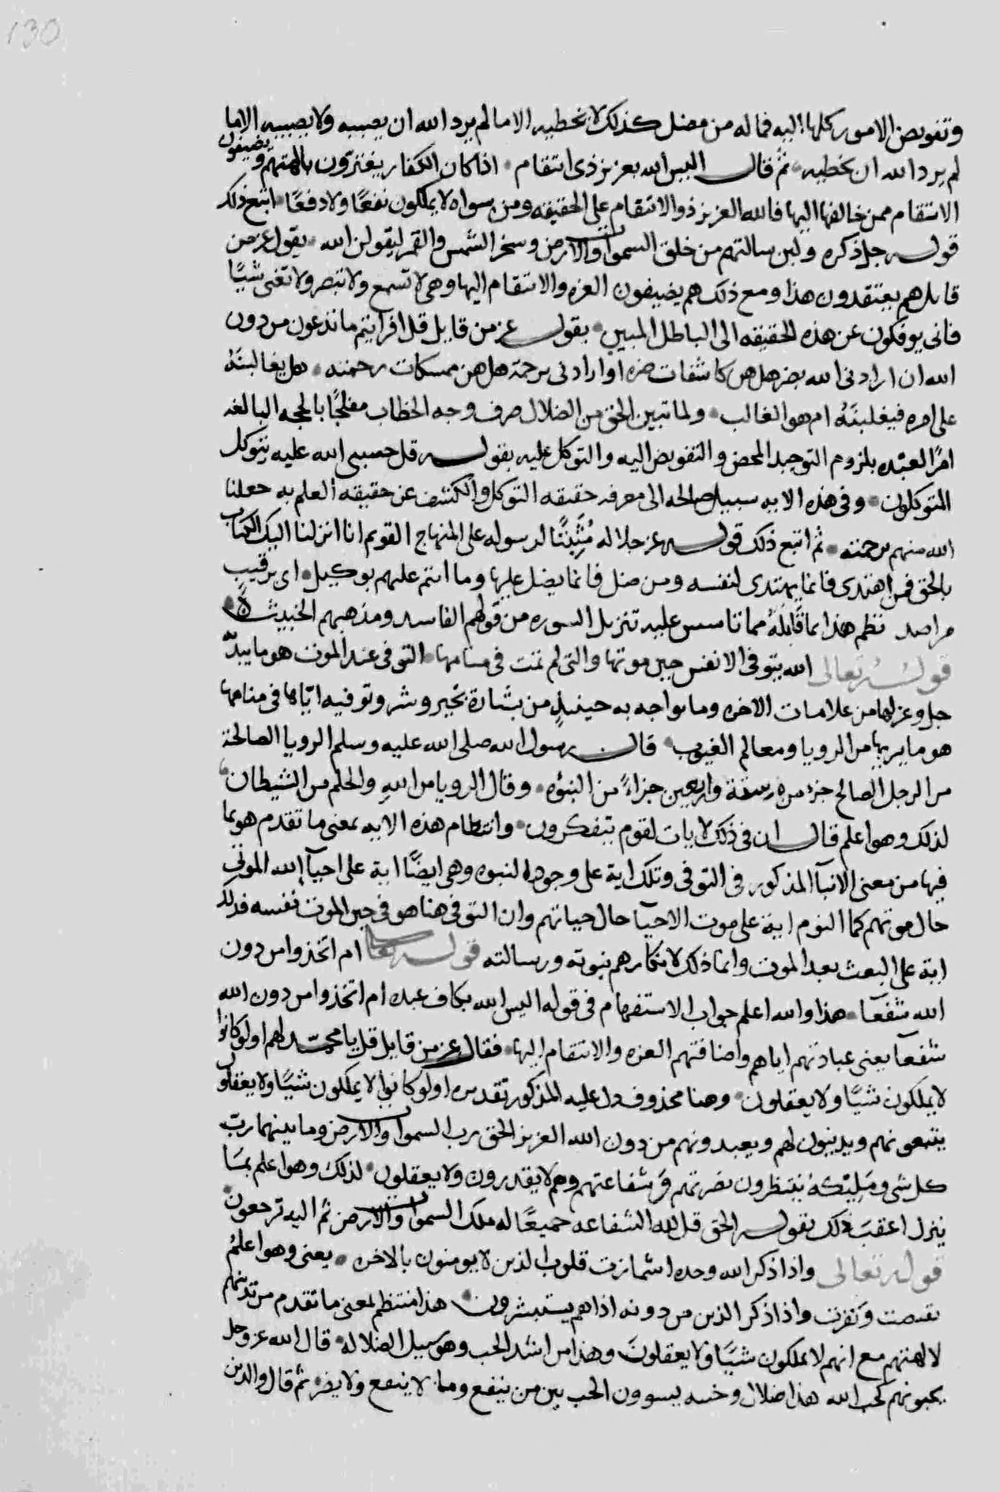 130
وتفويض الامور كلها اليه فما له من مضل كذلك لا تخطيه الا ما لم يرد الله ان يصيبه ولا يصيبه الا ما
لم يرد الله ان يخطيه ثم قال اليس الله بعزيز ذى انتقام اذا كان الكفار يغترون بالهتهم ويضيفون
الانتقام ممن خالفها اليها فالله العزيز ذو الانتقام على الحقيقه ومن سواه لا يملكون نفعًا ولا دفعًا اتبع ذلك
قوله جل ذكره ولين سالتهم من خلق السموات والارض وسخر الشمس والقمر ليقولن الله يقول عز من
قايل هم يعتقدون هذا ومع ذلك هم يضيفون العزه والانتقام اليها وهى لا تسمع ولا تبصر ولا تغنى شيًا
فانى يوفكون عن هذه الحقيقه الى الباطل المبين يقول عز من قايل قل افرايتم ما تدعون من دون
الله ان ارادنى الله بضر هل هن كاشفات ضره او ارادنى برحمة هل هن ممسكات رحمته هل يغالبنه
على امره فيغلبنه ام هو الغالب ولما تبين الحق من الضلال صرف وجه الخطاب مفلجًا بالحجه البالغه
امرًا لعبده بلزوم التوحيد المحض والتفويض اليه والتوكل عليه بقوله قل حسبى الله عليه يتوكل
المتوكلون وفى هذه الايه سبيل صالحه الى معرفه حقيقه التوكل والكشف عن حقيقه العلم به جعلنا
الله منهم برحمته ثم اتبع ذلك قوله عز جلاله مُثبِتًا لرسوله على المنهاج القويم انا انزلنا اليك الكتاب
بالحق فمن اهتدى فانما يهتدى لنفسه ومن ضل فانما يضل عليها وما انتم عليهم بوكيل اى برقيب
مراصد نظم هذا بما قابله مما تاسس عليه تنزيل السوره من قولهم الفاسد ومذهبهم الخبيث
قوله تعالى الله يتوفى الانفس حين موتها والتى لم تمت فى منامها التوفى عند الموت هو ما يبد
جل وعز لها من علامات الاخره وما تواجه به حينيذ من بشارة بخير وشر وتوفيه اياها فى منامها
هو ما يريها من الرويا ومعالم الغيوب قال رسول الله صلى الله عليه وسلم الرويا الصالحة
من الرجل الصالح جزء من ستة واربعين جزاءً من النبوه وقال الرويا من الله والحلم من الشيطان
لذلك وهو اعلم قال ان فى ذلك لايات لقوم يتفكرون وانتظام هذه الايه بمعنى ما تقدم هو بما
فيها من معنى الانبآ المذكور فى التوفى وتلك اية على وجود النبوه وهى ايضًا اية على احيآ الله الموتى
حال موتهم كما النوم اية على موت الاحيآ حال حياتهم وان التوفى هنا هو فى حين الموت نفسه فذلك
اية على البعث بعد الموت وانما ذلك لانكارهم نبوته ورسالته قوله تعالى ام اتخذوا من دون
الله شفعآ هذا والله اعلم جواب الاستفهام فى قوله اليس الله بكاف عبده ام اتخذوا من دون الله
شفعآ يعنى عبادتهم اياهم واضافتهم العزه والانتقام اليها فقال عز من قايل قل يا محمد لهم اولو كانوا
لا يملكون شيًا ولا يعقلون وهنا محذوف دل عليه المذكور تقديره اولو كانوا لا يملكون شيًا ولا يعقلون
يتبعونهم ويدينون لهم ويعبدونهم من دون الله العزيز الحق رب السموات والارض وما بينهما رب
كل شى ومليكه ينتظرون نصرتهم وشفاعتهم وهم لا يقدرون ولا يعقلون لذلك وهو اعلم بما
ينزل اعقب ذلك بقوله الحق قل لله الشفاعه جميعًا له ملك السموات والارض ثم اليه ترجعون
قوله تعالى واذا ذكر الله وحده اشمازت قلوب الذين لا يومنون بالاخره يعنى وهو اعلم
تقبضت ونفرت واذا ذكر الذين من دونه اذا هم يستبشرون هذا منتظم لمعنى ما تقدم من تدينهم
لالهتهم مع انهم لا يملكون شيًا ولا يعقلون وهذا من اشد الحب وهو سبيل الضلاله قال الله عز وجل
يحبونهم كحب الله هذا ضلال وخسه يسوون الحب بين من ينفع وما لا ينفع ولا يضر ثم قال والذين